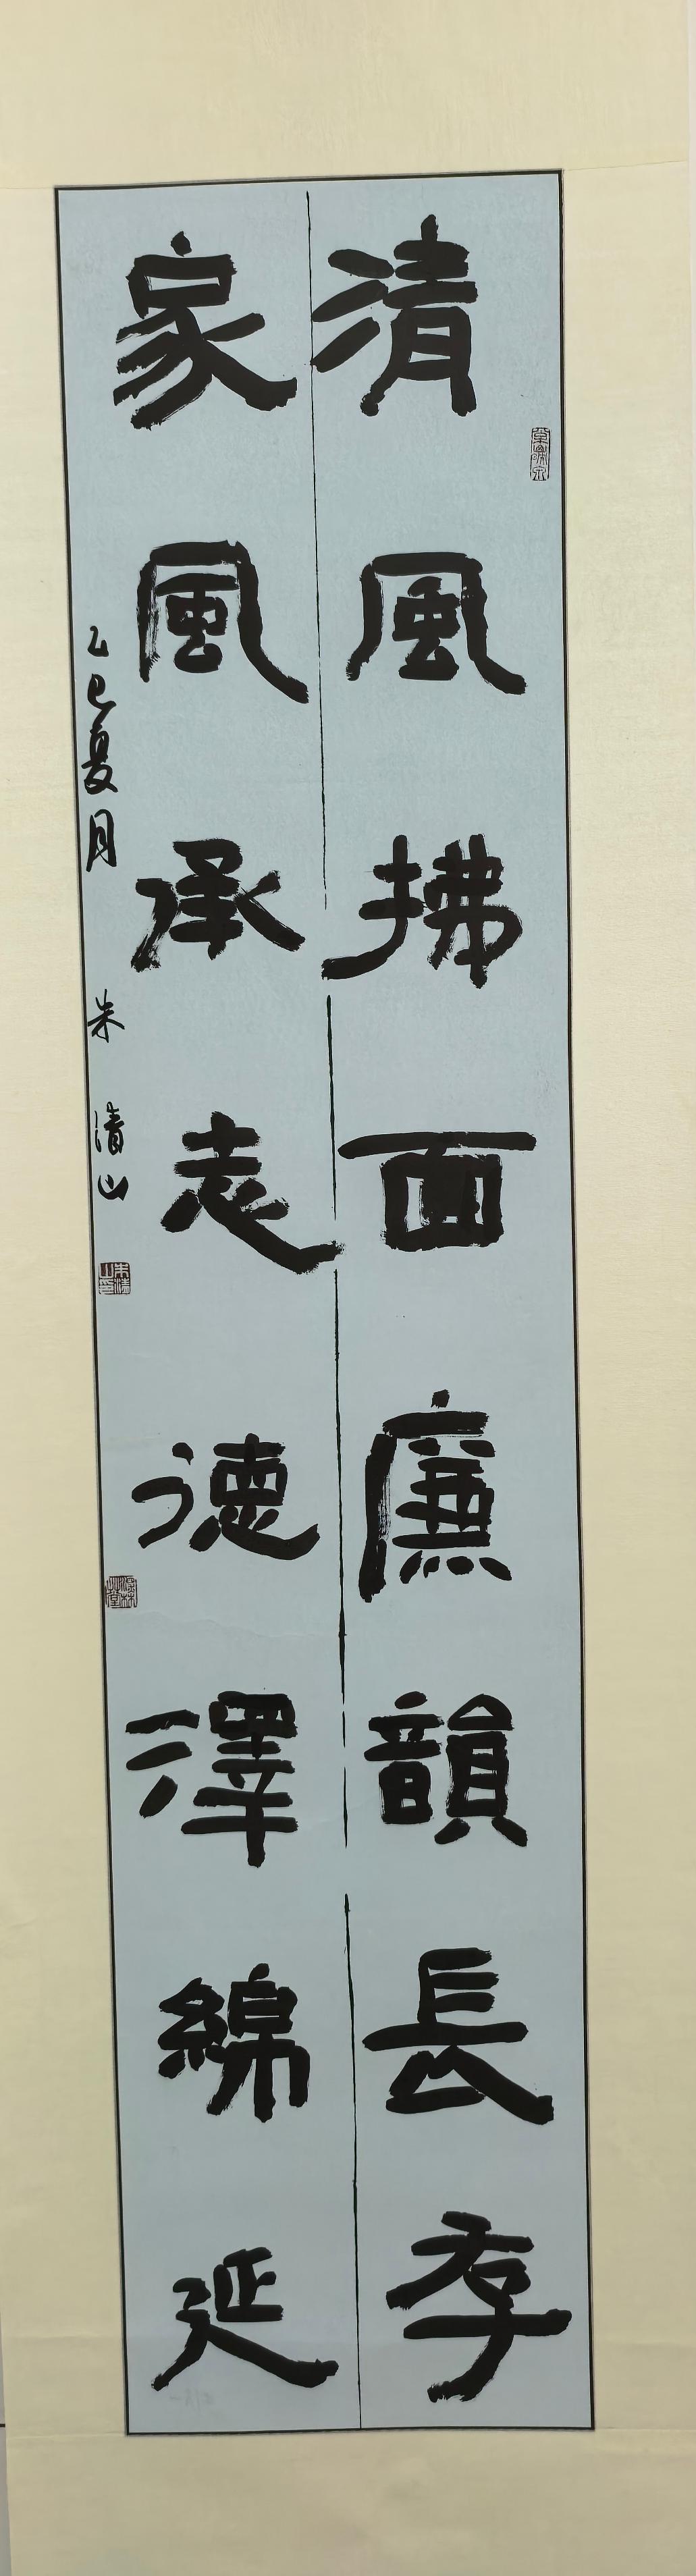 清風拂面廉韻長存
家風承志德澤綿延
乙巳夏月 朱清山
朱清山印